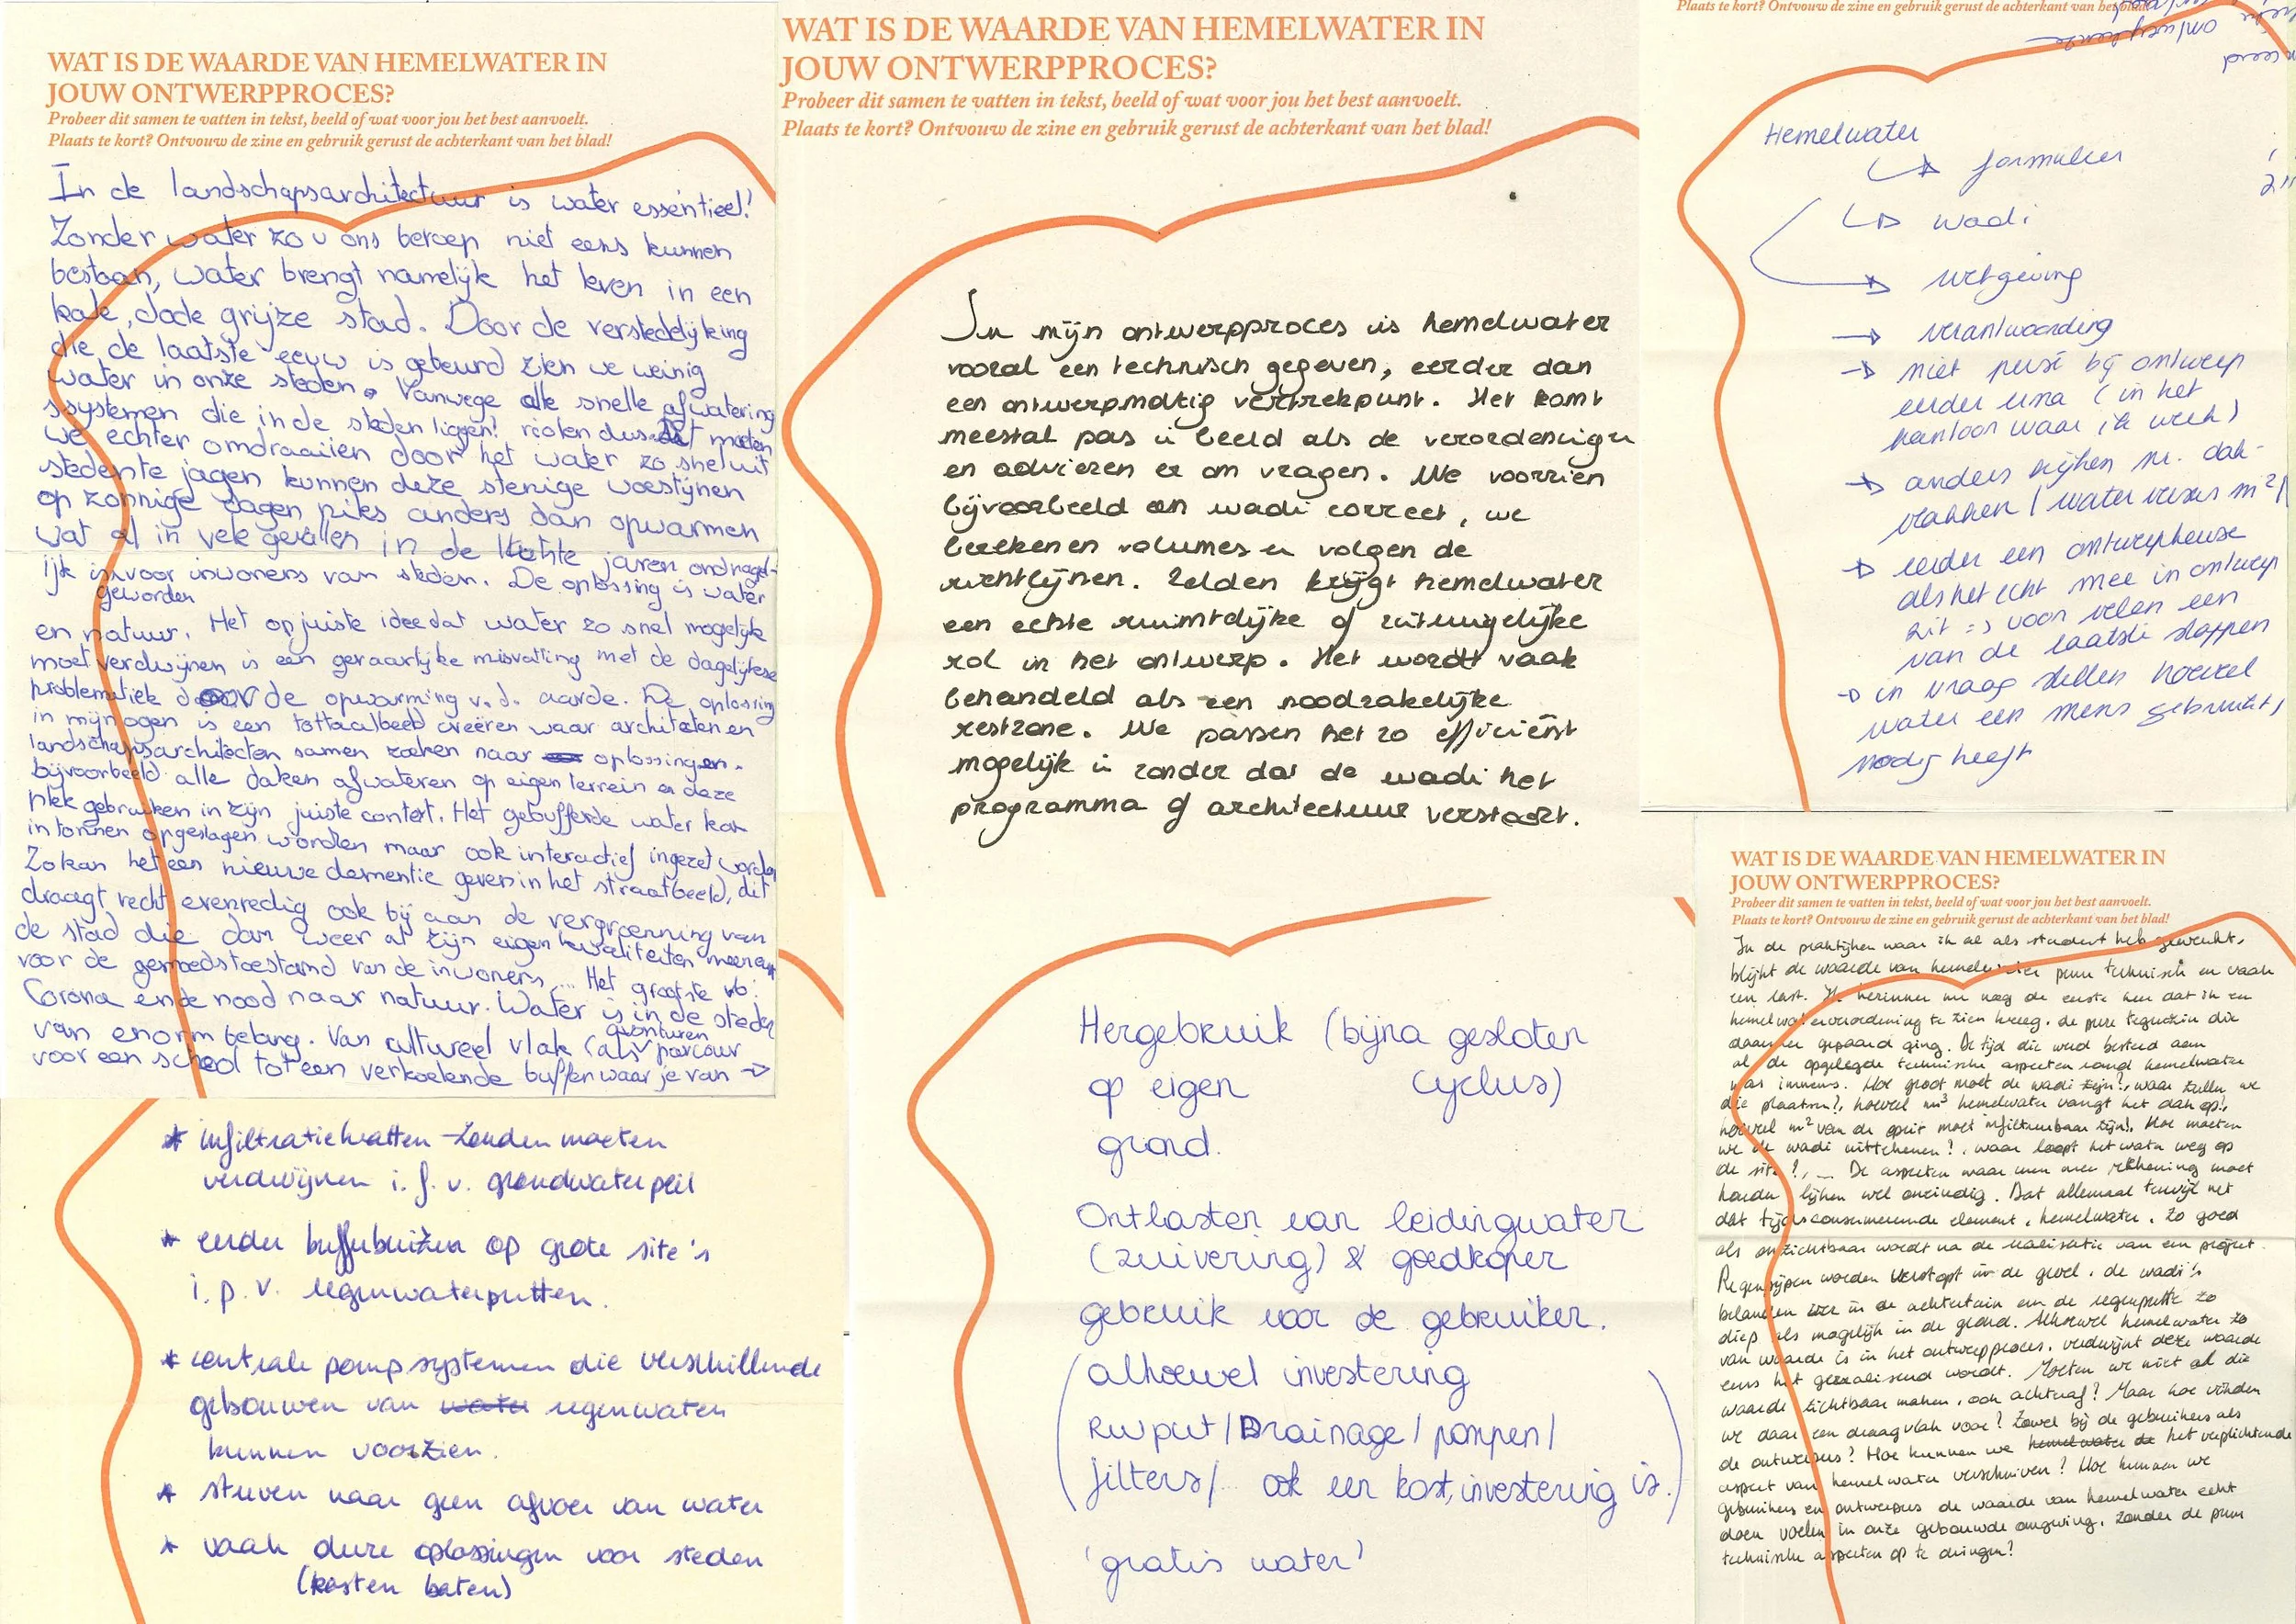 WAT IS DE WAARDE VAN HEMELWATER IN
JOUW ONTWERPPROCES?
Probeer dit samen te vatten in tekst, beeld of wat voor jou het best aanvoelt.
Plaats te kort? Ontvouw de zine en gebruik gerust de achterkant van het blad!
In de landschapsarchitectuur is water essentieel!
Zonder water zou ons beroep niet eens kunnen
bestaan, water brengt namelijk het leven in een
kale, dode grijze stad. Door de verstedelijking
die de laatste eeuw is gebeurd zien we weinig
water in onze steden. Vanwege alle snelle afwatering
ssystemen die in de steden liggen! riolen dus. Dit moeten
we echter omdraaiien door het water zo snel uit
stedente jagen kunnen deze stenige woestijnen
op zonnige dagen niks anders dan opwarmen
wat al in vele gevallen in de laatste jaren ondragel-
ijk is voor inwoners van steden. De oplossing is water
geworden
en natuur. Het onjuiste idee dat water zo snel mogelijk
moet verdwijnen is een gevaarlijke misvatting met de dagelijkse
problematiek door de opwarming v.d. aarde. De oplossing
in mijn ogen is een tottaalbeeld creëren waar architecten en
landschapsarchitecten samen zoeken naar oplossingen.
bijvoorbeeld alle daken afwateren op eigen terrein en deze
plek gebruiken in zijn juiste context. Het gebufferde water kan
in tonnen opgeslagen worden maar ook interactief ingezet worden
Zo kan het een nieuwe dementie geven in het straatbeeld, dit
draagt recht evenredig ook bij aan de vergroenning van
de stad die dan weer al zijn eigen kwaliteiten
voor de gemoedstoestand van de inwoners... Het grootste vb:
Corona en de nood naar natuur. Water is in de steden
van enorm belang. Van cultureel vlak (als avonturen parcour
voor een school tot een verkoelende buffer waar je van →
WAT IS DE WAARDE VAN HEMELWATER IN
JOUW ONTWERPPROCES?
Probeer dit samen te vatten in tekst, beeld of wat voor jou het best aanvoelt.
Plaats te kort? Ontvouw de zine en gebruik gerust de achterkant van het blad!
In mijn ontwerpproces is hemelwater
vooral een technisch gegeven, eerder dan
een ontwerpmatig vertrekpunt. Het komt
meestal pas in beeld als de verordeningen
en adviezen er om vragen. We voorzien
bijvoorbeeld een wadi correct, we
berekenen volumes en volgen de
richtlijnen. Zelden krijgt hemelwater
een echte ruimtelijke of zintuigelijke
rol in het ontwerp. Het wordt vaak
behandeld als een noodzakelijke
restzone. We passen het zo efficiënt
mogelijk in zonder dat de wadi het
programma of architectuur verstoort.
Plaats te kort? Ontvouw de zine en gebruik gerust de achterkant van het blad!
Hemelwater
↳ formulier
↳ wadi
→ wetgeving
→ verantwoording
→ niet persé bij ontwerp
eerder erna (in het
kantoor waar ik werk)
→ anders kijken nr. dak-
vlakken / water versus m²/
→ eerder een ontwerpkeuze
als het echt mee in ontwerp
zit => voor velen een
van de laatste stappen
→ in vraag stellen hoeveel
water een mens gebruikt,
nodig heeft
* infiltratiekratten zouden moeten
verdwijnen i.f.v. grondwaterpeil
* eerder bufferbuizen op grote site's
i.p.v. regenwaterputten.
* centrale pompsystemen die verschillende
gebouwen van water regenwater
kunnen voorzien.
* streven naar geen afvoer van water
* vaak dure oplossingen voor steden
(kosten baten)
Hergebruik (bijna gesloten
op eigen cyclus)
grond.
Ontlasten van leidingwater
(zuivering) & goedkoper
gebruik voor de gebruiker.
(alhoewel investering
RWput/Drainage/pompen/
filters/... ook een kost, investering is.)
'gratis water'
WAT IS DE WAARDE VAN HEMELWATER IN
JOUW ONTWERPPROCES?
Probeer dit samen te vatten in tekst, beeld of wat voor jou het best aanvoelt.
Plaats te kort? Ontvouw de zine en gebruik gerust de achterkant van het blad!
In de praktijken waar ik al als student heb gewerkt,
blijkt de waarde van hemelwater puur technisch en vaak
een last. Ik herinner me nog de eerste keer dat ik een
hemelwaterverordening te zien kreeg, de pure tegenzin die
daarmee gepaard ging. De tijd die werd besteed aan
al de opgelegde technische aspecten rond hemelwater
was immens. Hoe groot moet de wadi zijn?, waar zullen we
die plaatsen?, hoeveel m³ hemelwater vangt het dak op?,
hoeveel m² van de oprit moet infiltreerbaar zijn?, Hoe moeten
we de wadi uittekenen?, waar loopt het water weg op
de site?, ... De aspecten waar men mee rekening moet
houden lijken wel oneindig. Dat allemaal terwijl net
dat tijdsconsumerende element, hemelwater, zo goed
als onzichtbaar wordt na de realisatie van een project.
Regenpijpen worden verstopt in de gevel, de wadi's
belanden in de achtertuin en de regenputte zo
diep als mogelijk in de grond. Alhoewel hemelwater zo
van waarde is in het ontwerpproces, verdwijnt deze waarde
eens het gerealiseerd wordt. Moeten we niet al die
waarde zichtbaar maken, ook achteraf? Maar hoe vinden
we daar een draagvlak voor? Zowel bij de gebruikers als
de ontwerpers? Hoe kunnen we hemelwater de het verplichtende
aspect van hemelwater verschuiven? Hoe kunnen we
gebruikers en ontwerpers de waarde van hemelwater echt
doen voelen in onze gebouwde omgeving, zonder de puur
technische aspecten op te dringen?